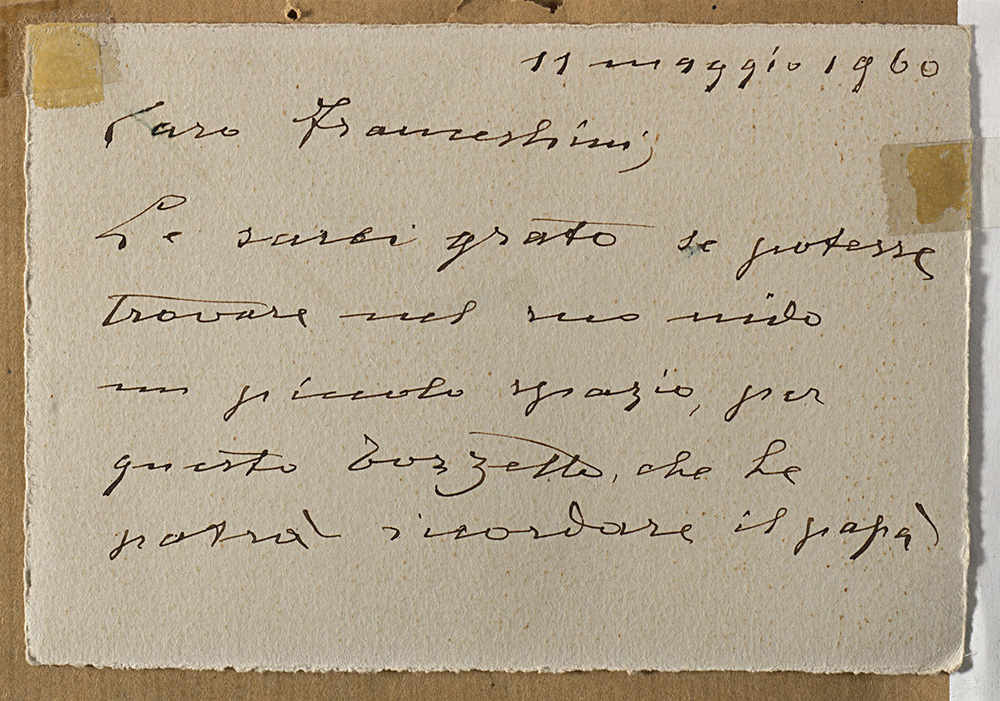 11 maggio 1960
Caro Franceschini,
Le sarei grato se potesse
trovare nel suo nido
un piccolo spazio, per
questo bozzetto, che Le
potrà ricordare il papà